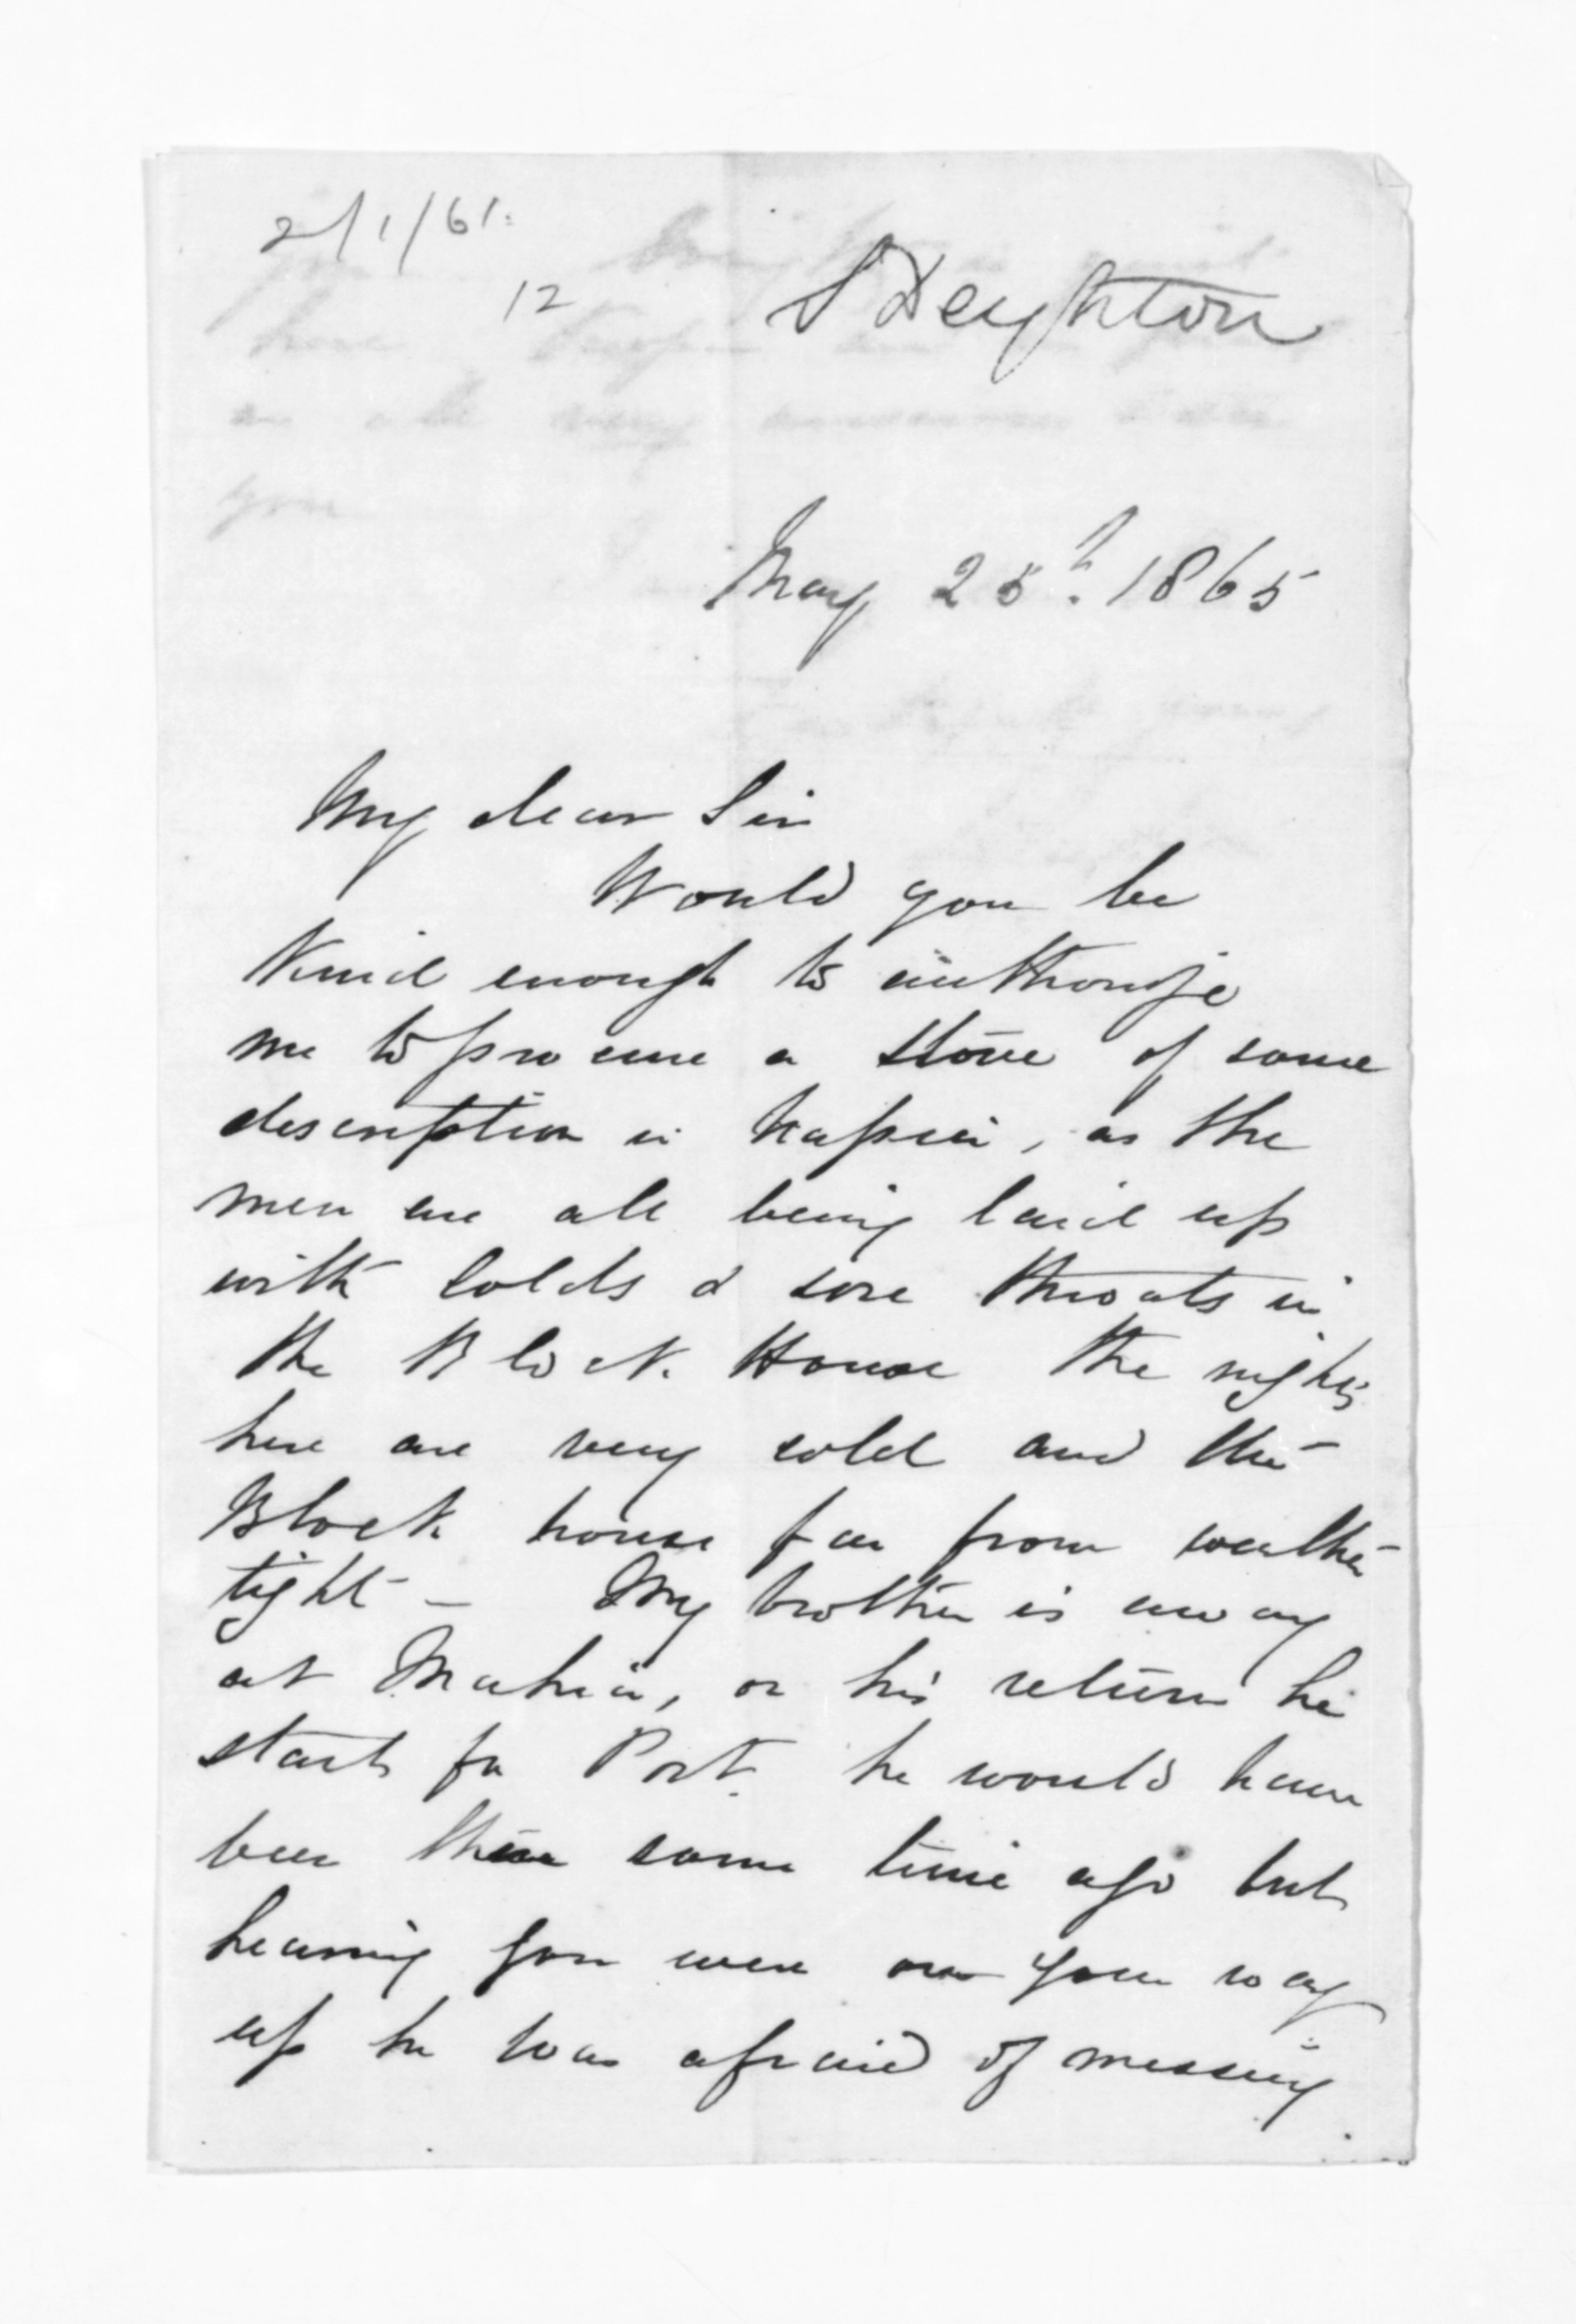 2/1/61.
12
S Deighton
May 25th. 1865
My dear Sir
Would you be
Kind enough to authorize
me to procure a stove of some
description in Napier, as the
men are all being laid up
with colds & sore throats in
the Block House the nights
here are very cold and the
Block house far from weather
tight - My brother is away
at Mahia, on his return he
starts for Port. he would have
been there some time ago but
hearing you were on your way
up he was afraid of missing